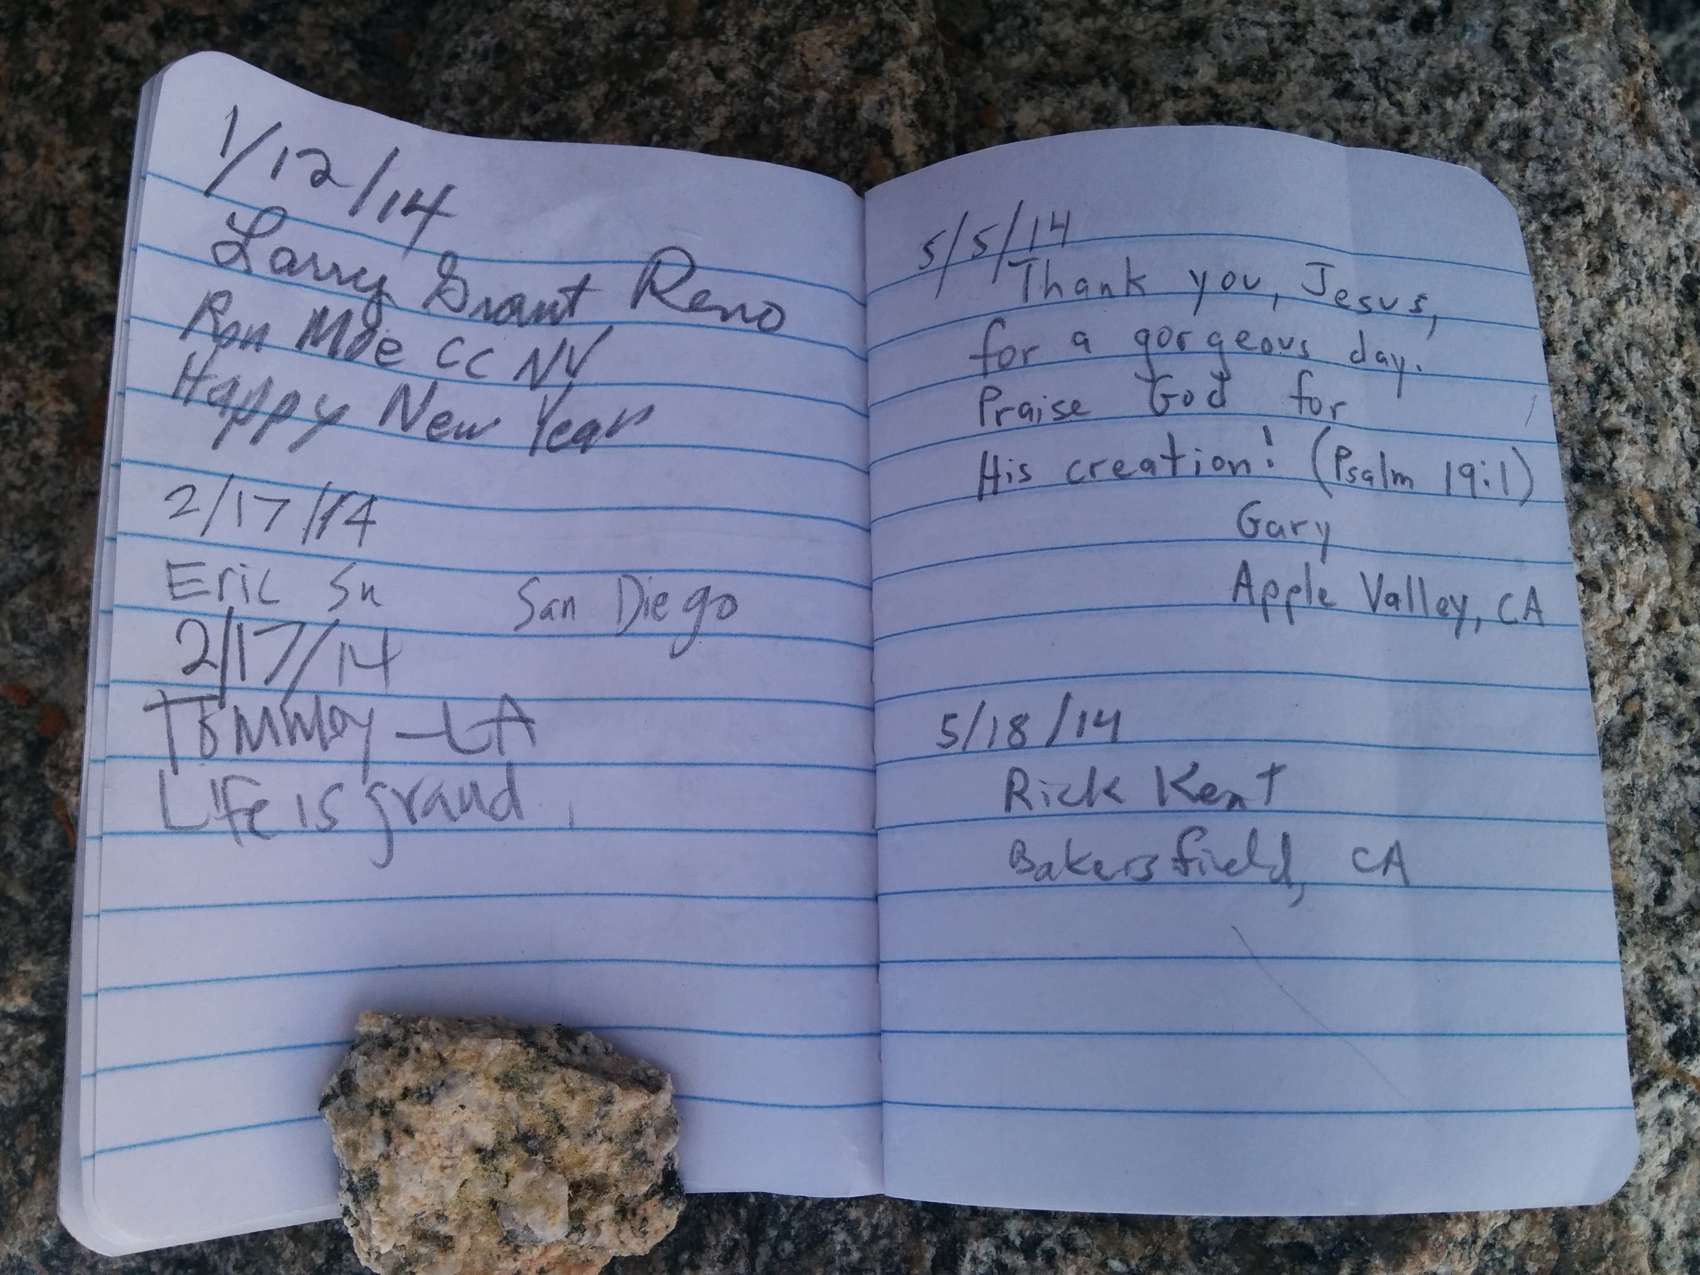 1/12/14
Larry Grant Reno
Ron Moe CC NV
Happy New Year
2/17/14
Eric Su San Diego
2/17/14
Tommy - LA
Life is grand
5/5/14
Thank you, Jesus,
for a gorgeous day.
Praise God for
His creation! (Psalm 19:1)
Gary
Apple Valley, CA
5/18/14
Rick Kent
Bakersfield, CA